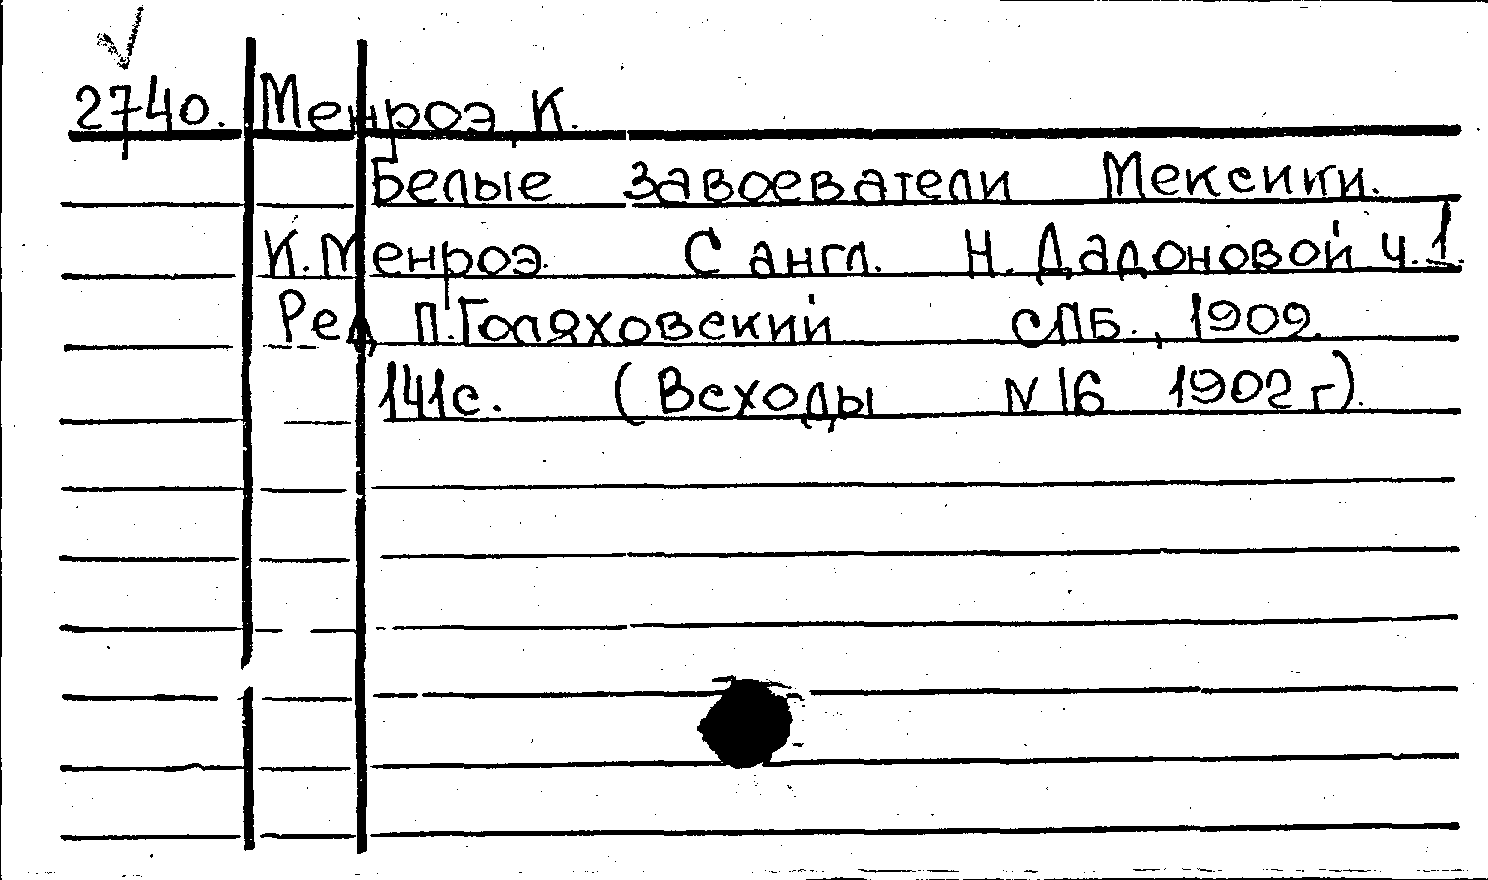 2740. Менроэ, К.
Белые завоеватели Мексики.
К. Менроэ. С англ. Н. Дадоновой ч.1.
Ред П. Голяховский СПБ., 1909.
141с. (Всходы N 16 1902 г).